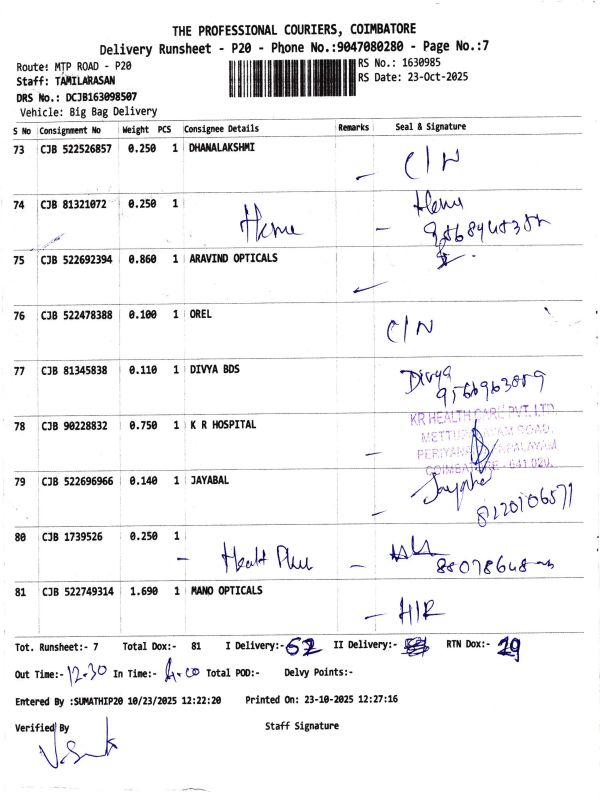 THE PROFESSIONAL COURIERS, COIMBATORE
Delivery Runsheet - P20 - Phone No.:9047080280 - Page No.:7
Route: MTP ROAD - P20
RS No.: 1630985
Staff: TAMILARASAN
RS Date: 23-Oct-2025
DRS No.: DCJB163098507
Vehicle: Big Bag Delivery
S No Consignment No Weight PCS Consignee Details Remarks Seal & Signature
73 CJB 522526857 0.250 1 DHANALAKSHMI
C/N
74 CJB 81321072 0.250 1
75 CJB 522692394 0.860 1 ARAVIND OPTICALS
76 CJB 522478388 0.100 1 OREL
C/N
77 CJB 81345838 0.110 1 DIVYA BDS
Divya
9566963089
78 CJB 90228832 0.750 1 K R HOSPITAL
KR HEALTH CARE PVT. LTD
ROAD,
COIMBATORE - 641 020.
79 CJB 522696966 0.140 1 JAYABAL
8220106571
80 CJB 1739526 0.250 1
81 CJB 522749314 1.690 1 MANO OPTICALS
- H/R
Tot. Runsheet:- 7 Total Dox:- 81 I Delivery:- 52 II Delivery:- RTN Dox:- 29
Out Time:- 12.30 In Time:- 6.00 Total POD:- Delvy Points:-
Entered By :SUMATHIP20 10/23/2025 12:22:20 Printed On: 23-10-2025 12:27:16
Verified By Staff Signature